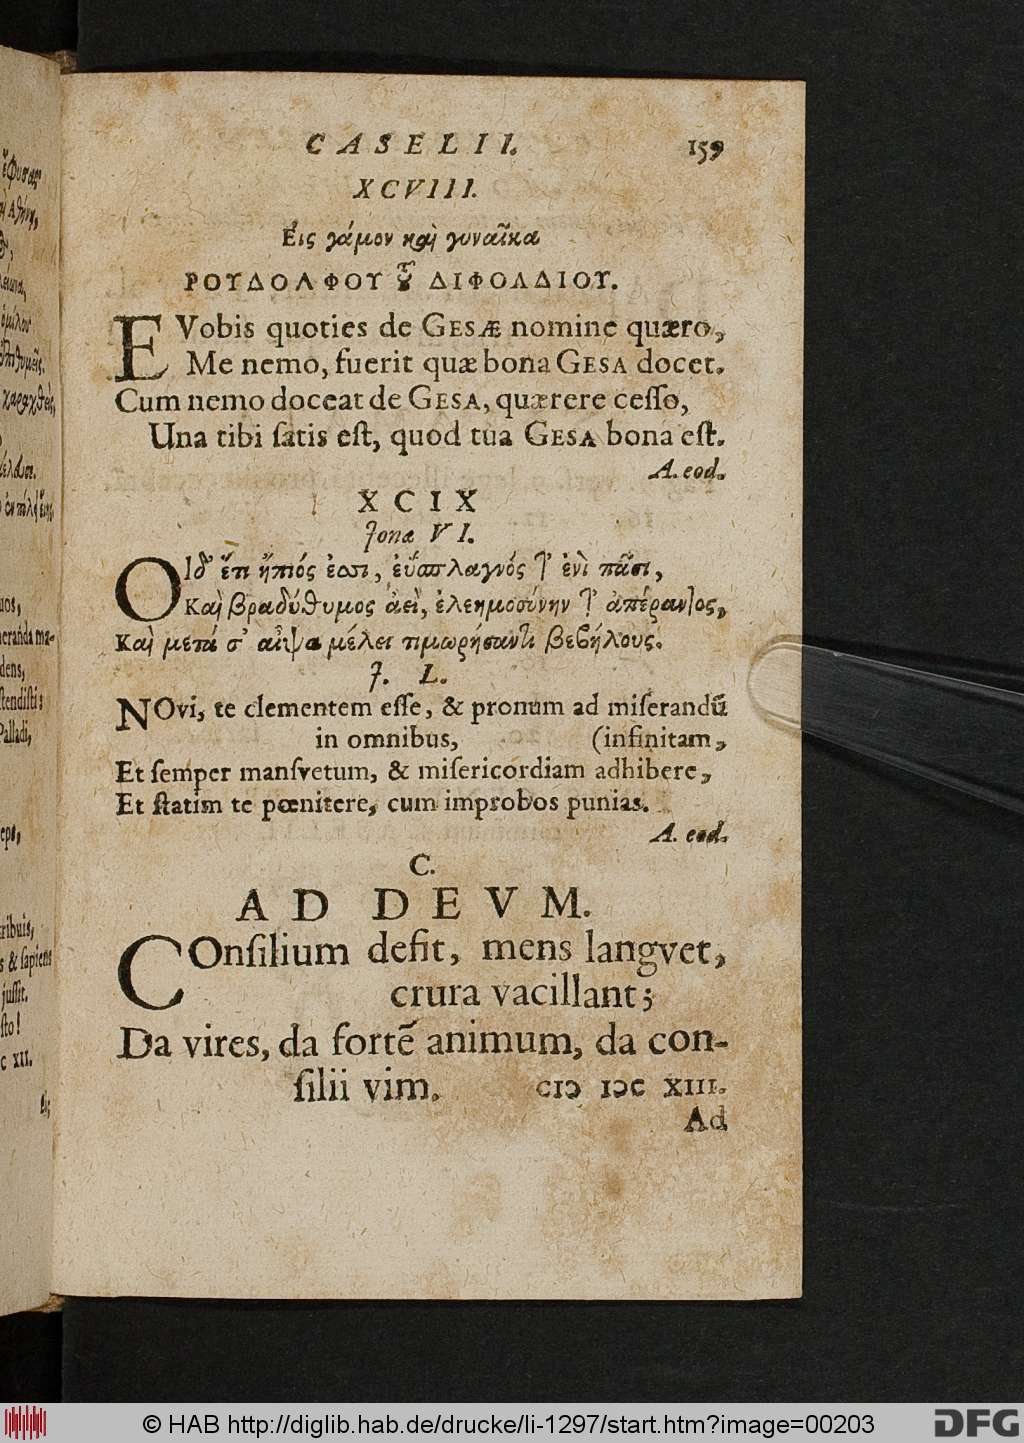 CASELII. 159
XCVIII.
Εἰς γάμον καὶ γυναῖκα
ΡΟΥΔΟΛΦΟΥ τοῦ ΔΙΦΟΛΔΙΟΥ.
E Vobis quoties de GESÆ nomine quæro,
Me nemo, fuerit quæ bona GESA docet.
Cum nemo doceat de GESA, quærere cesso,
Una tibi satis est, quod tua GESA bona est.
A. eod.
XCIX
Jonæ VI.
ΟΙδ' ἔτι ἤπιός ἐσσι, εὔσπλαγνός τ' ἐνὶ πᾶσι,
Καὶ βραδύθυμος ἀεὶ, ἐλεημοσύνην τ' ἀπέραντος,
Καὶ μετά σ' αἶψα μέλει τιμωρήσαντι βεβήλους.
J. L.
NOvi, te clementem esse, & pronum ad miserandũ
in omnibus, (infinitam,
Et semper mansvetum, & misericordiam adhibere,
Et statim te pœnitere, cum improbos punias.
A. eod.
C.
AD DEVM.
COnsilium defit, mens langvet,
crura vacillant;
Da vires, da fortẽ animum, da con-
silii vim. CIƆ IƆC XIII.
Ad
© HAB http://diglib.hab.de/drucke/li-1297/start.htm?image=00203
DFG